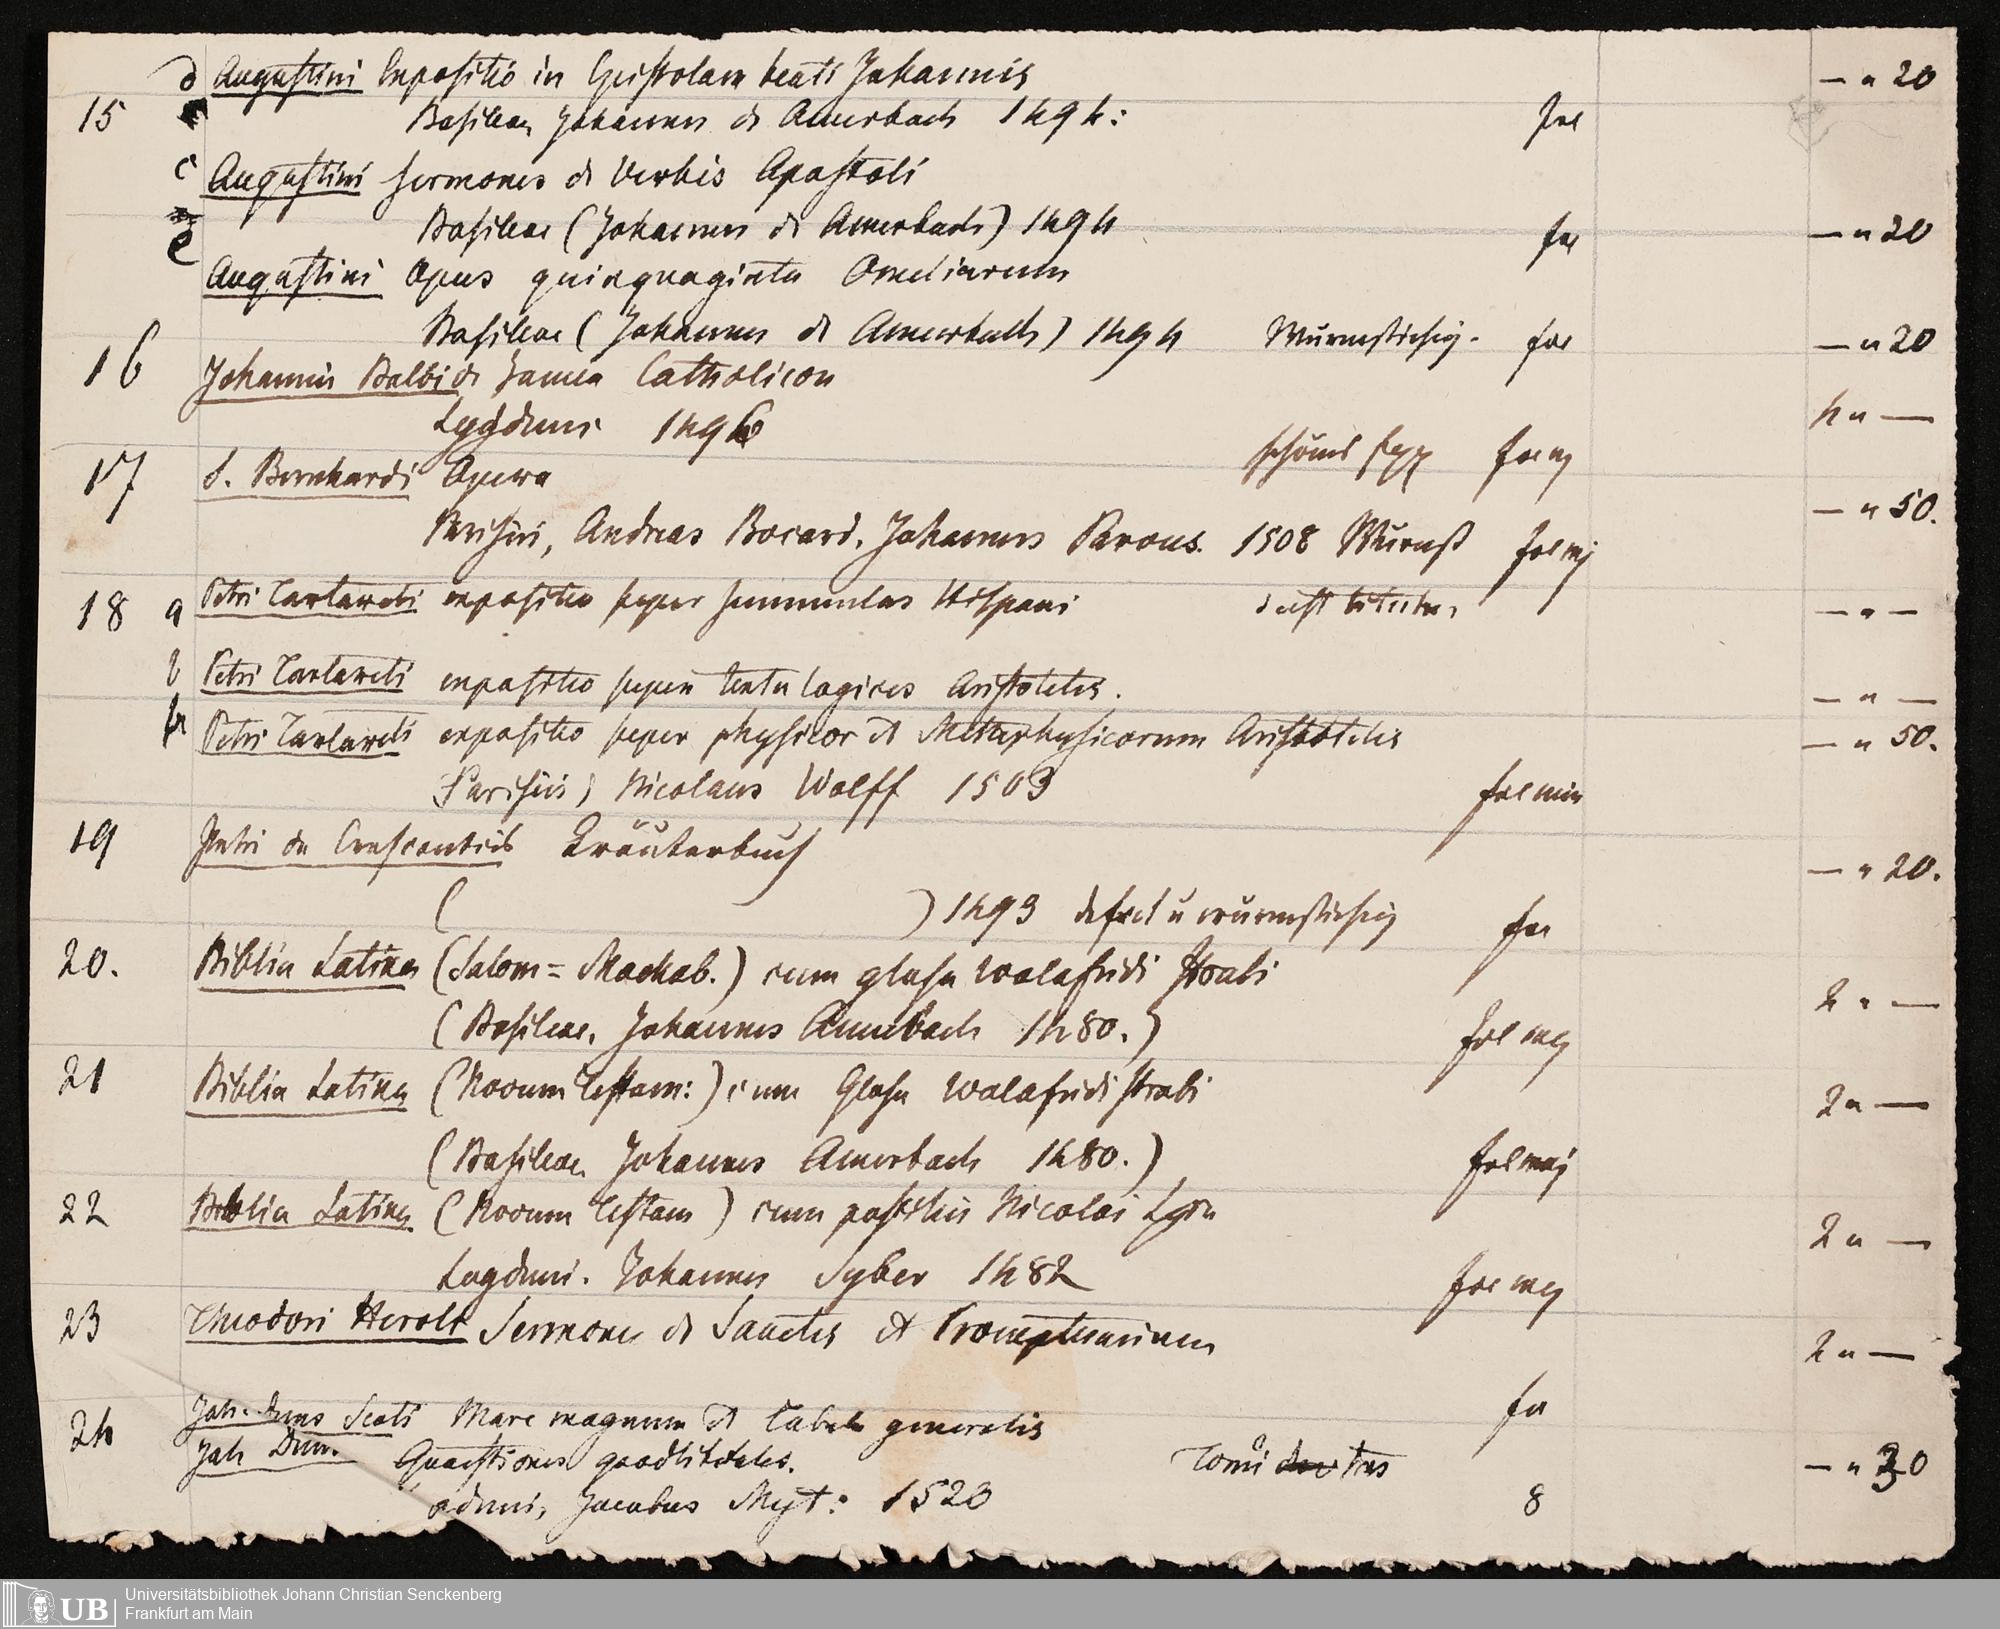 d Augustini Expositio in Epistolam beati Johannis — " 20
15 Basileae, Johannes de Amerbach 1494: fol
c Augustini sermones de Verbis Apostoli
Basileae (Johannes de Amerbach) 1494 fol — " 20
e Augustini Opus quinquaginta Omeliarum
Basileae (Johannes de Amerbach) 1494 Wurmstichig. fol — " 20
16 Johannis Balbi de Janua Catholicon
Lugduni 1496 schönes Expl fol mj 4 " —
17 S. Bernhardi Opera
Parisiis, Andreas Bocard, Johannes Parvus. 1508 Wurmst fol mj — " 50.
18 a Petri Tartareti expositio super Summulas Hispani — " —
b Petri Tartareti expositio super textu logices Aristotelis. — " —
Petri Tartareti expositio super physicor et Metaphysicorum Aristotelis — " 50.
Parisiis) Nicolaus Wolff 1503 fol min
19 Petri de Crescentiis Kräuterbuch
( ) 1493 defect u wurmstichig fol — " 20.
20. Biblia Latina (Salom = Mackab.) cum glosa Walafridi Strabi
(Basileae, Johannes Amerbach 1480.) fol mj 2 " —
21 Biblia Latina (Novum Testam:) cum Glosa Walafridi Strabi
(Basileae Johannes Amerbach 1480.) fol maj 2 " —
22 Biblia Latina (Novum Testam) cum postillis Nicolai Lyra
Lugduni. Johannes Syber 1482 fol mj 2 " —
23 Theodori Herolt Sermones de Sanctis et Promptuarium
fol 2 " —
24 Joh. Duns Scoti Mare magnum et Tabula generalis
Joh Duns Quaestiones quodlibetales. Tomi tres
duni, Jacobus Myt: 1520 8 — " 30
UB Universitätsbibliothek Johann Christian Senckenberg
Frankfurt am Main